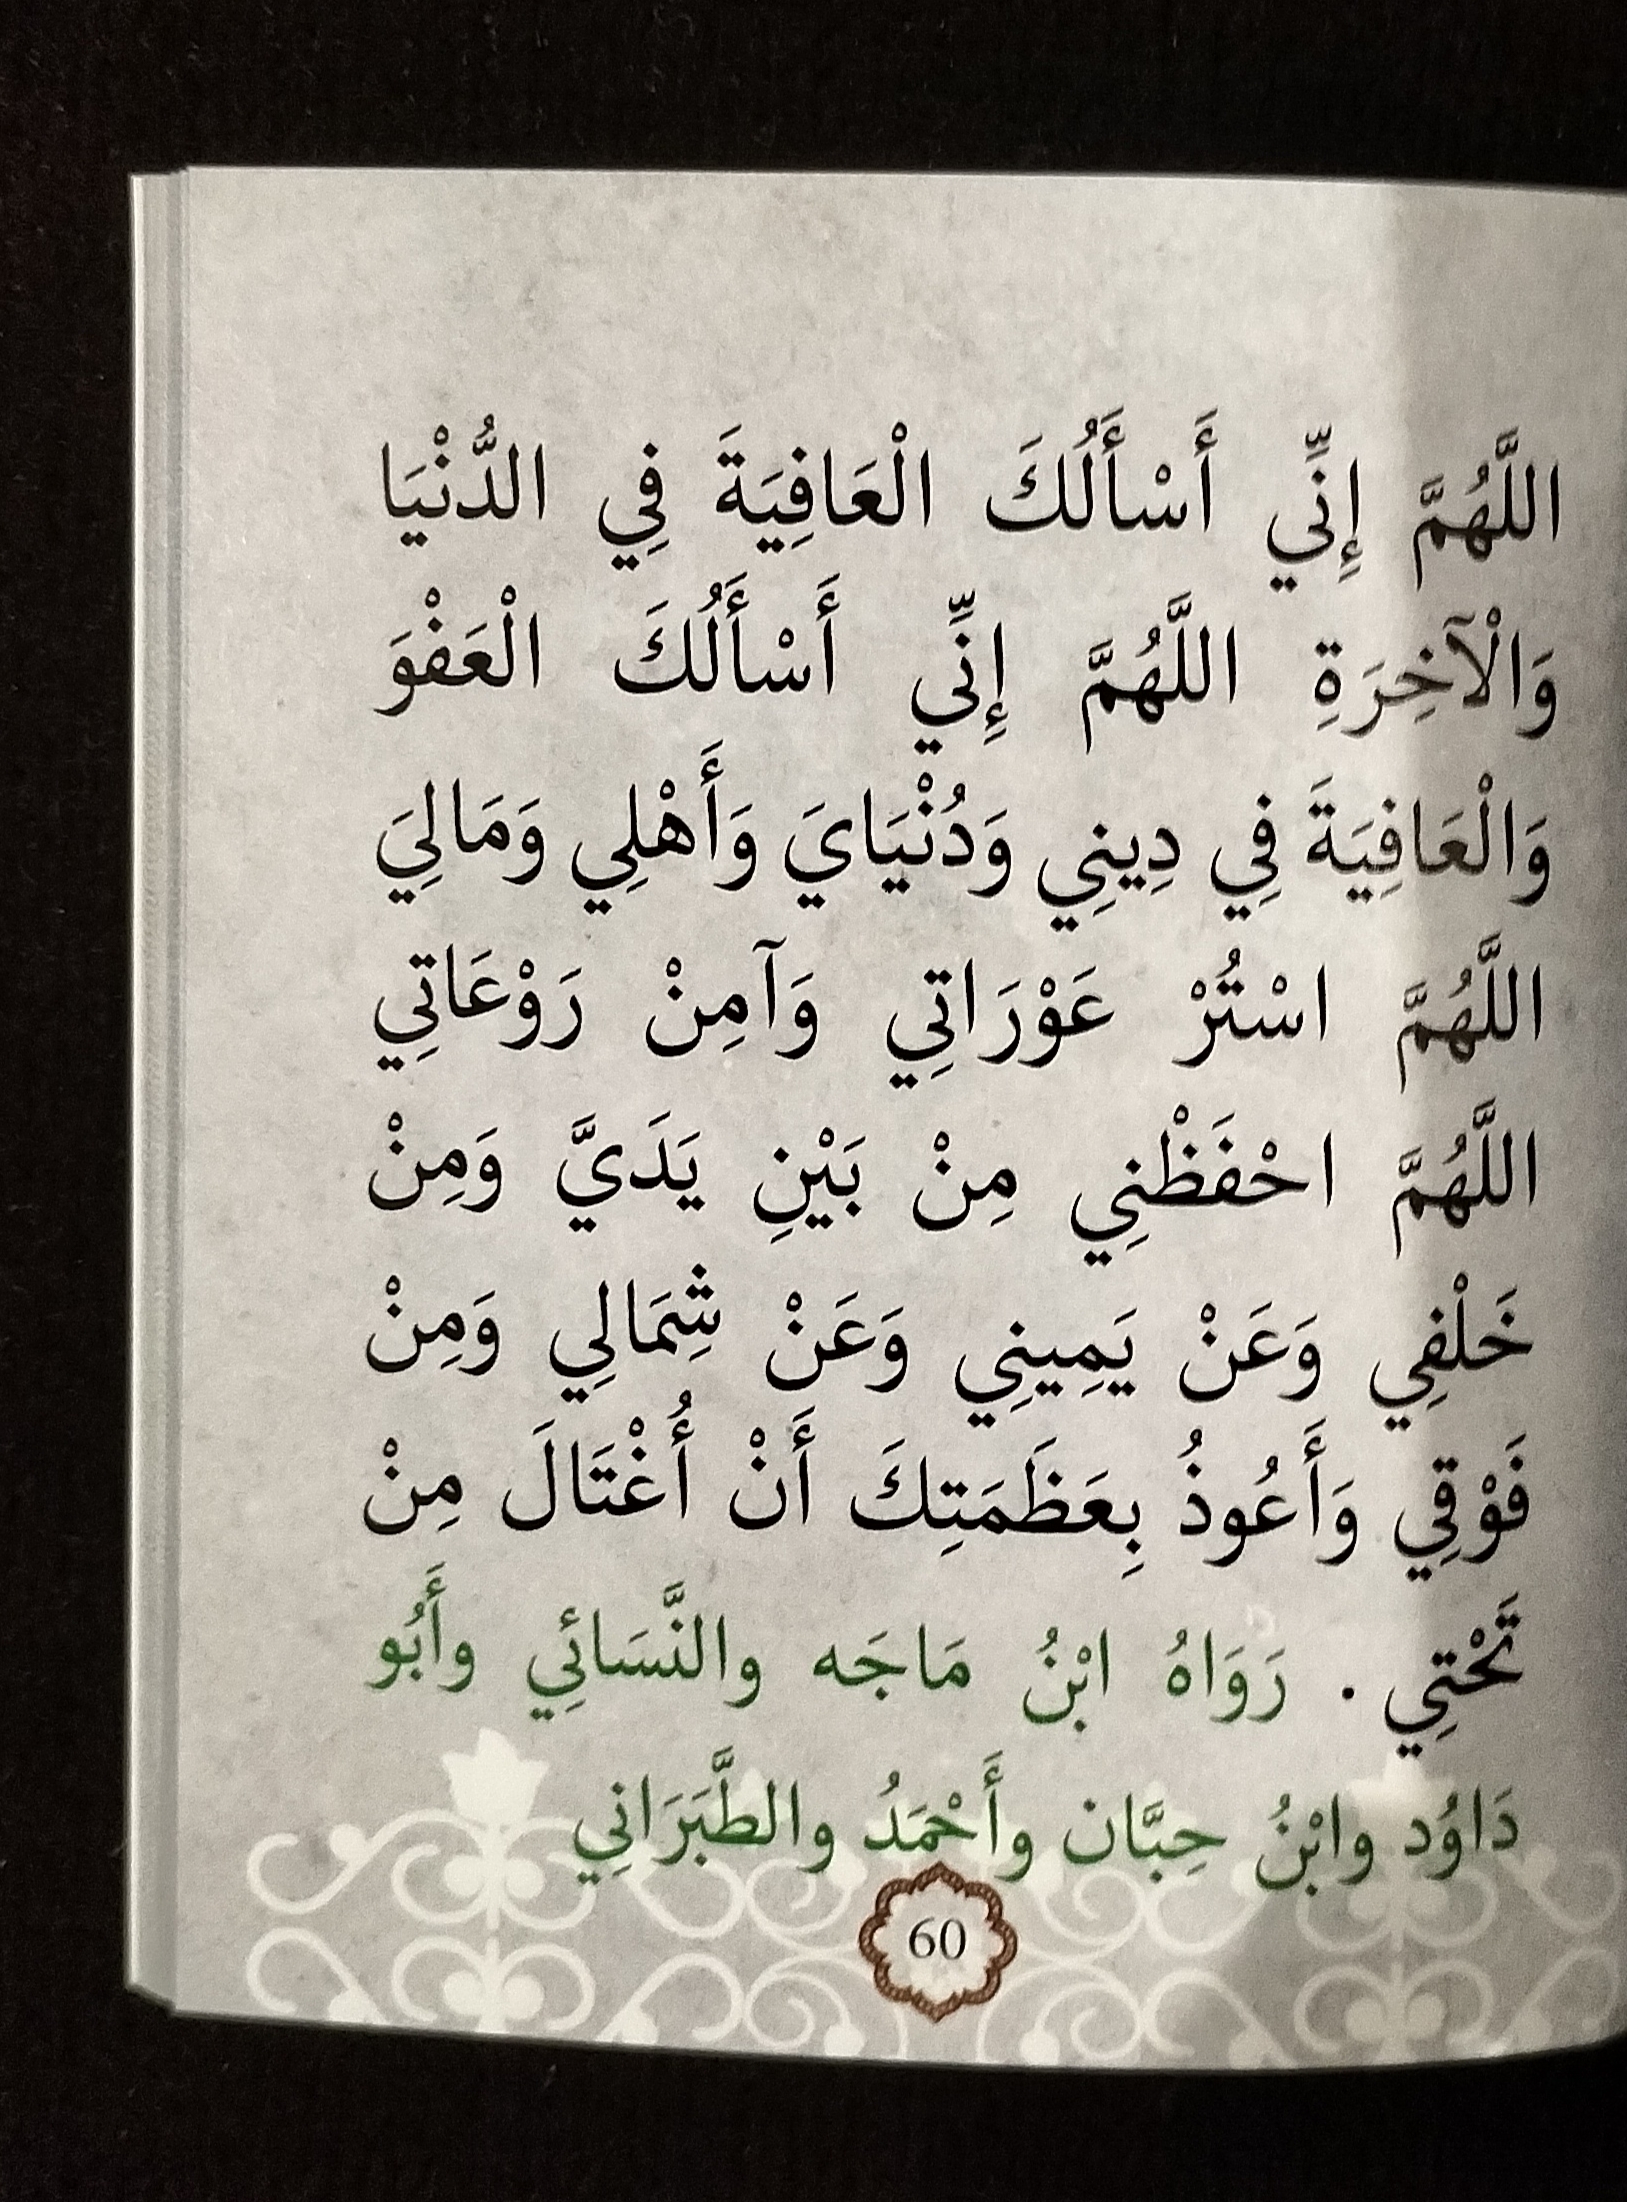 اللَّهُمَّ إِنِّي أَسْأَلُكَ الْعَافِيَةَ فِي الدُّنْيَا
وَالْآخِرَةِ اللَّهُمَّ إِنِّي أَسْأَلُكَ الْعَفْوَ
وَالْعَافِيَةَ فِي دِينِي وَدُنْيَايَ وَأَهْلِي وَمَالِيَ
اللَّهُمَّ اسْتُرْ عَوْرَاتِي وَآمِنْ رَوْعَاتِي
اللَّهُمَّ احْفَظْنِي مِنْ بَيْنِ يَدَيَّ وَمِنْ
خَلْفِي وَعَنْ يَمِينِي وَعَنْ شِمَالِي وَمِنْ
فَوْقِي وَأَعُوذُ بِعَظَمَتِكَ أَنْ أُغْتَالَ مِنْ
تَحْتِي . رَوَاهُ ابْنُ مَاجَه والنَّسَائِي وأَبُو
دَاوُد وابْنُ حِبَّان وأَحْمَدُ والطَّبَرَانِي
60